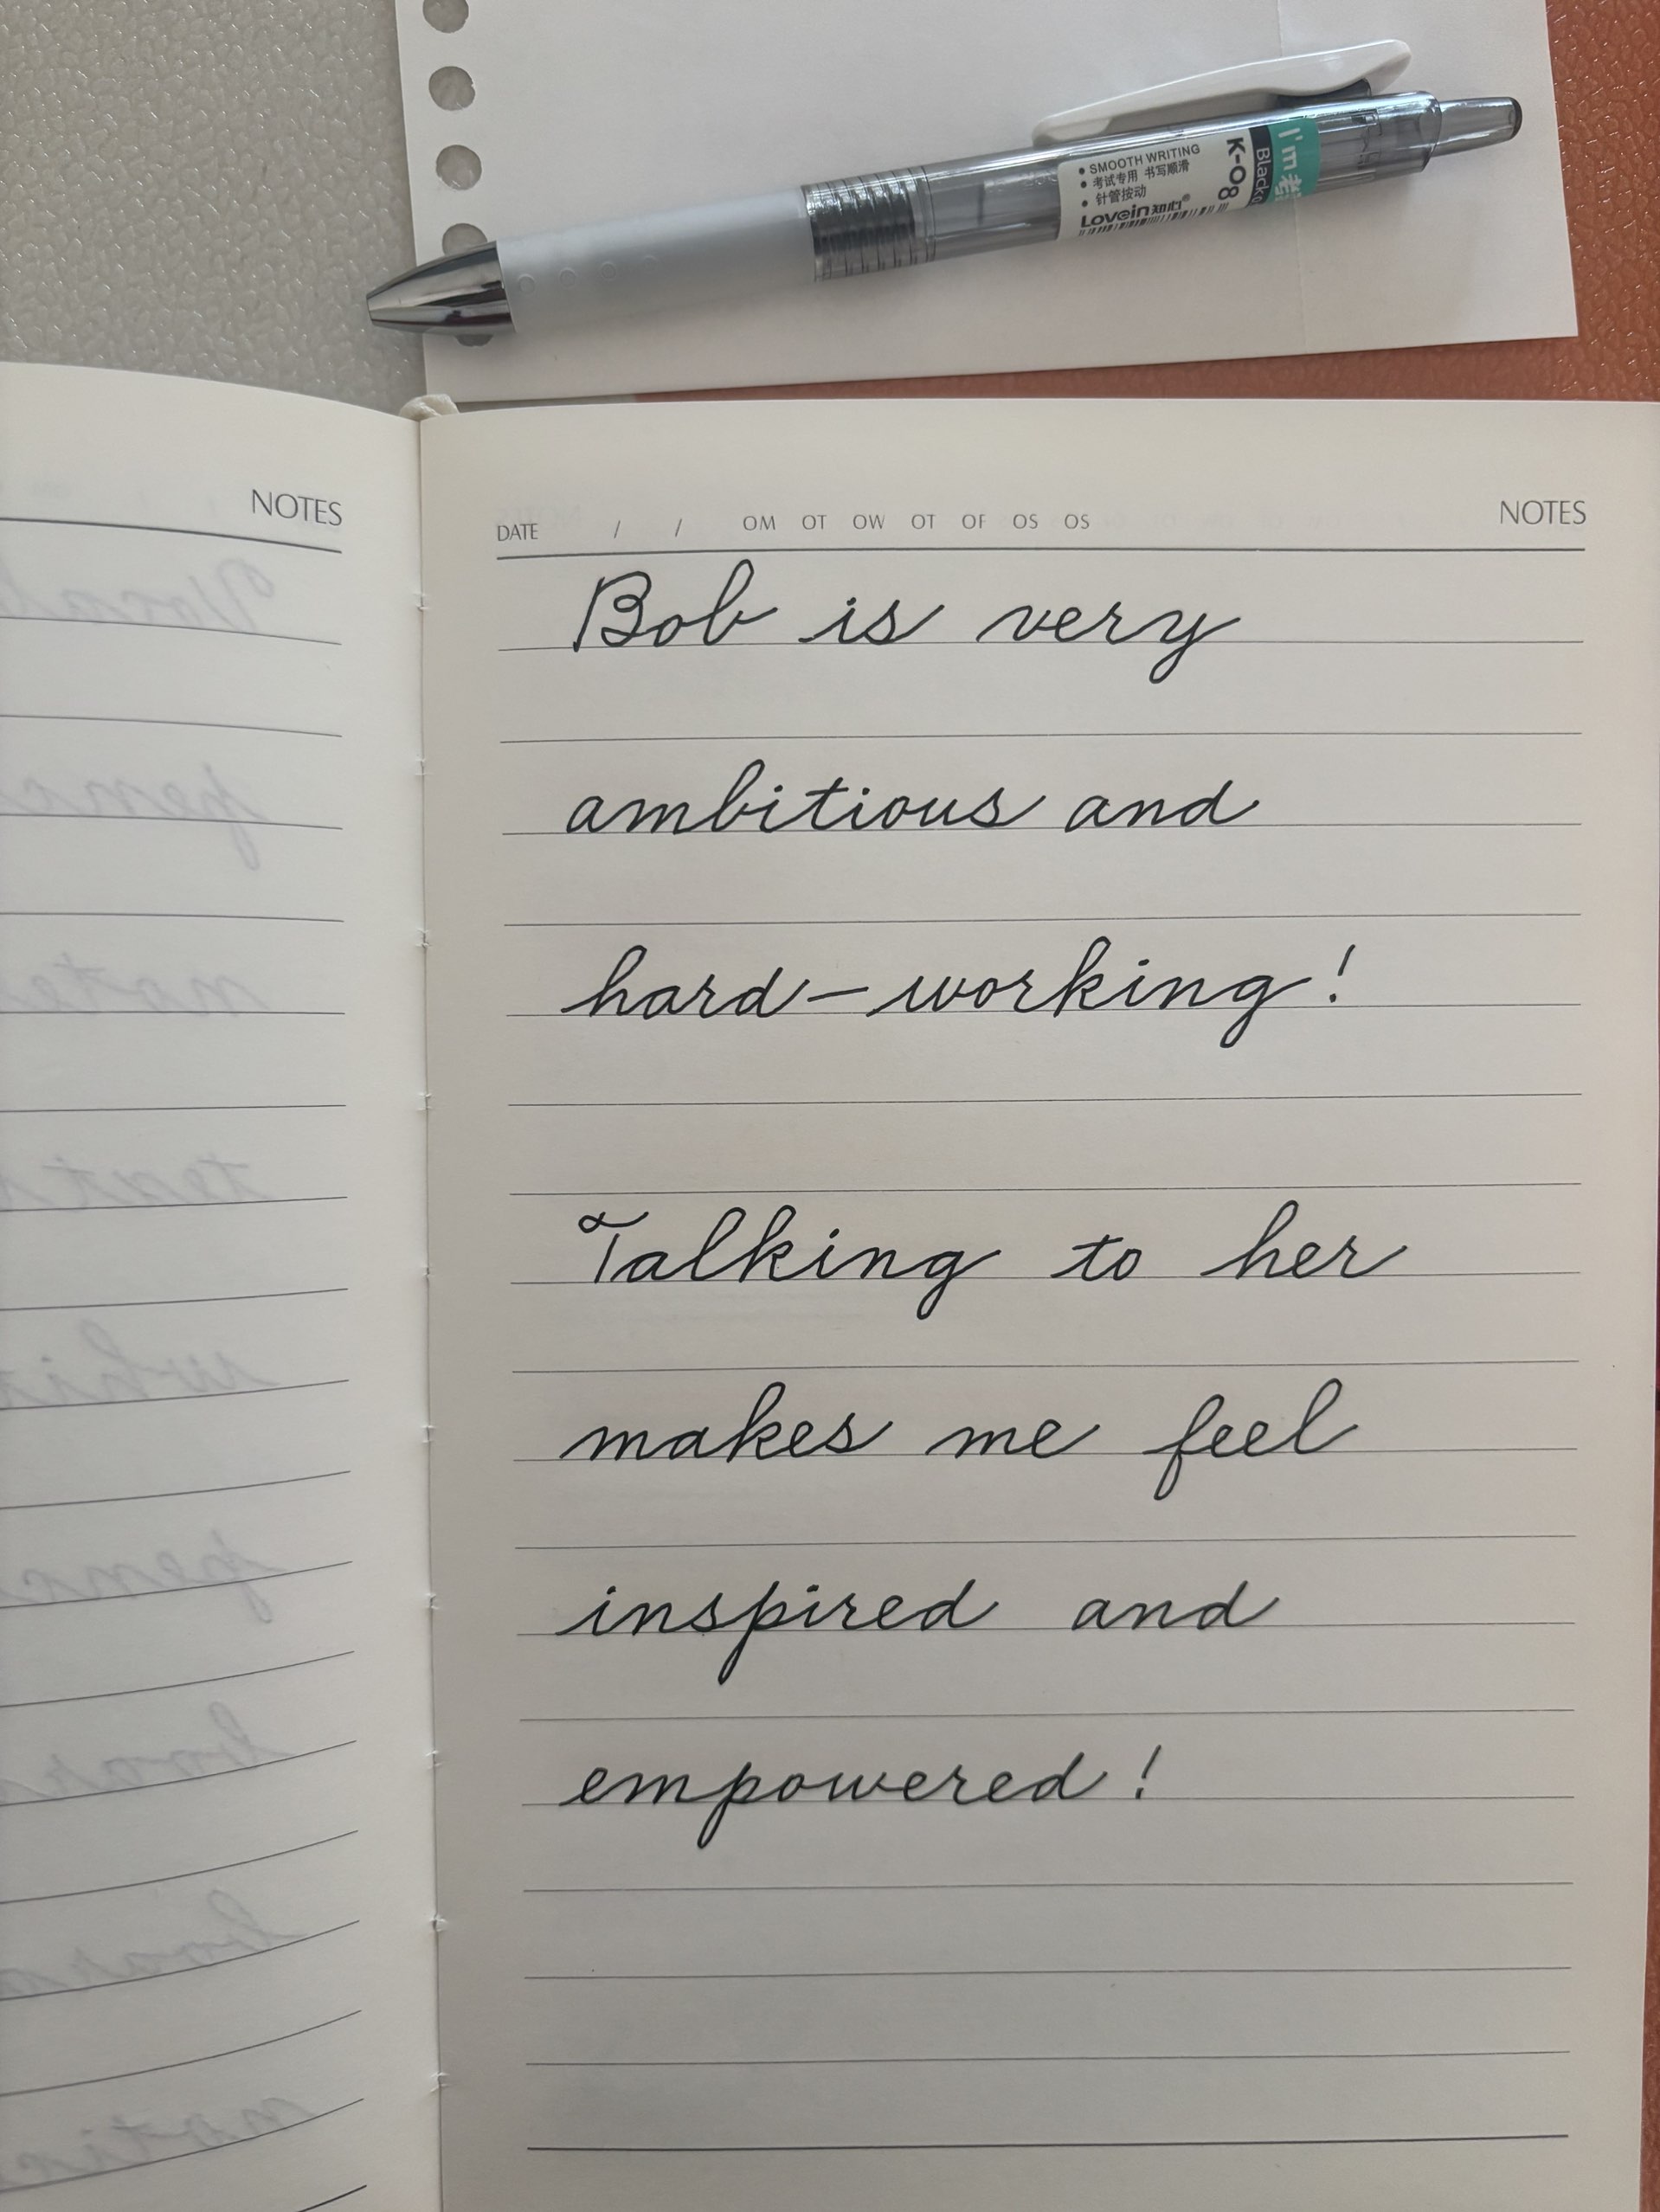 I'm
Black
K-08
• SMOOTH WRITING
• 考试专用 书写顺滑
• 针管按动
Lovein 知心®
NOTES
DATE / / OM OT OW OT OF OS OS NOTES
Bob is very
ambitious and
hard-working!
Talking to her
makes me feel
inspired and
empowered!